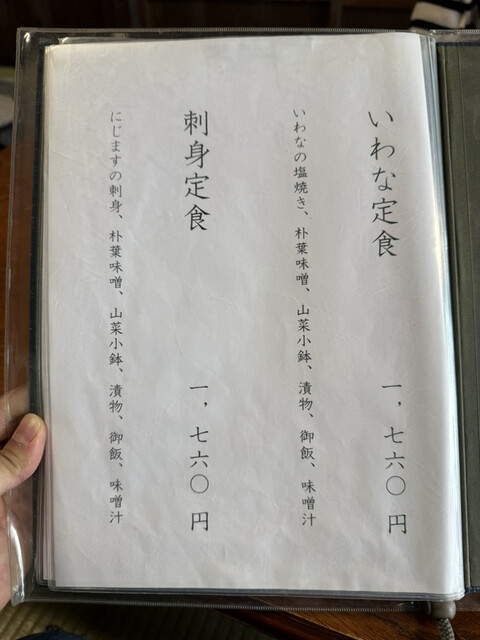 いわな定食　一，七六〇円
いわなの塩焼き、朴葉味噌、山菜小鉢、漬物、御飯、味噌汁
刺身定食　一，七六〇円
にじますの刺身、朴葉味噌、山菜小鉢、漬物、御飯、味噌汁